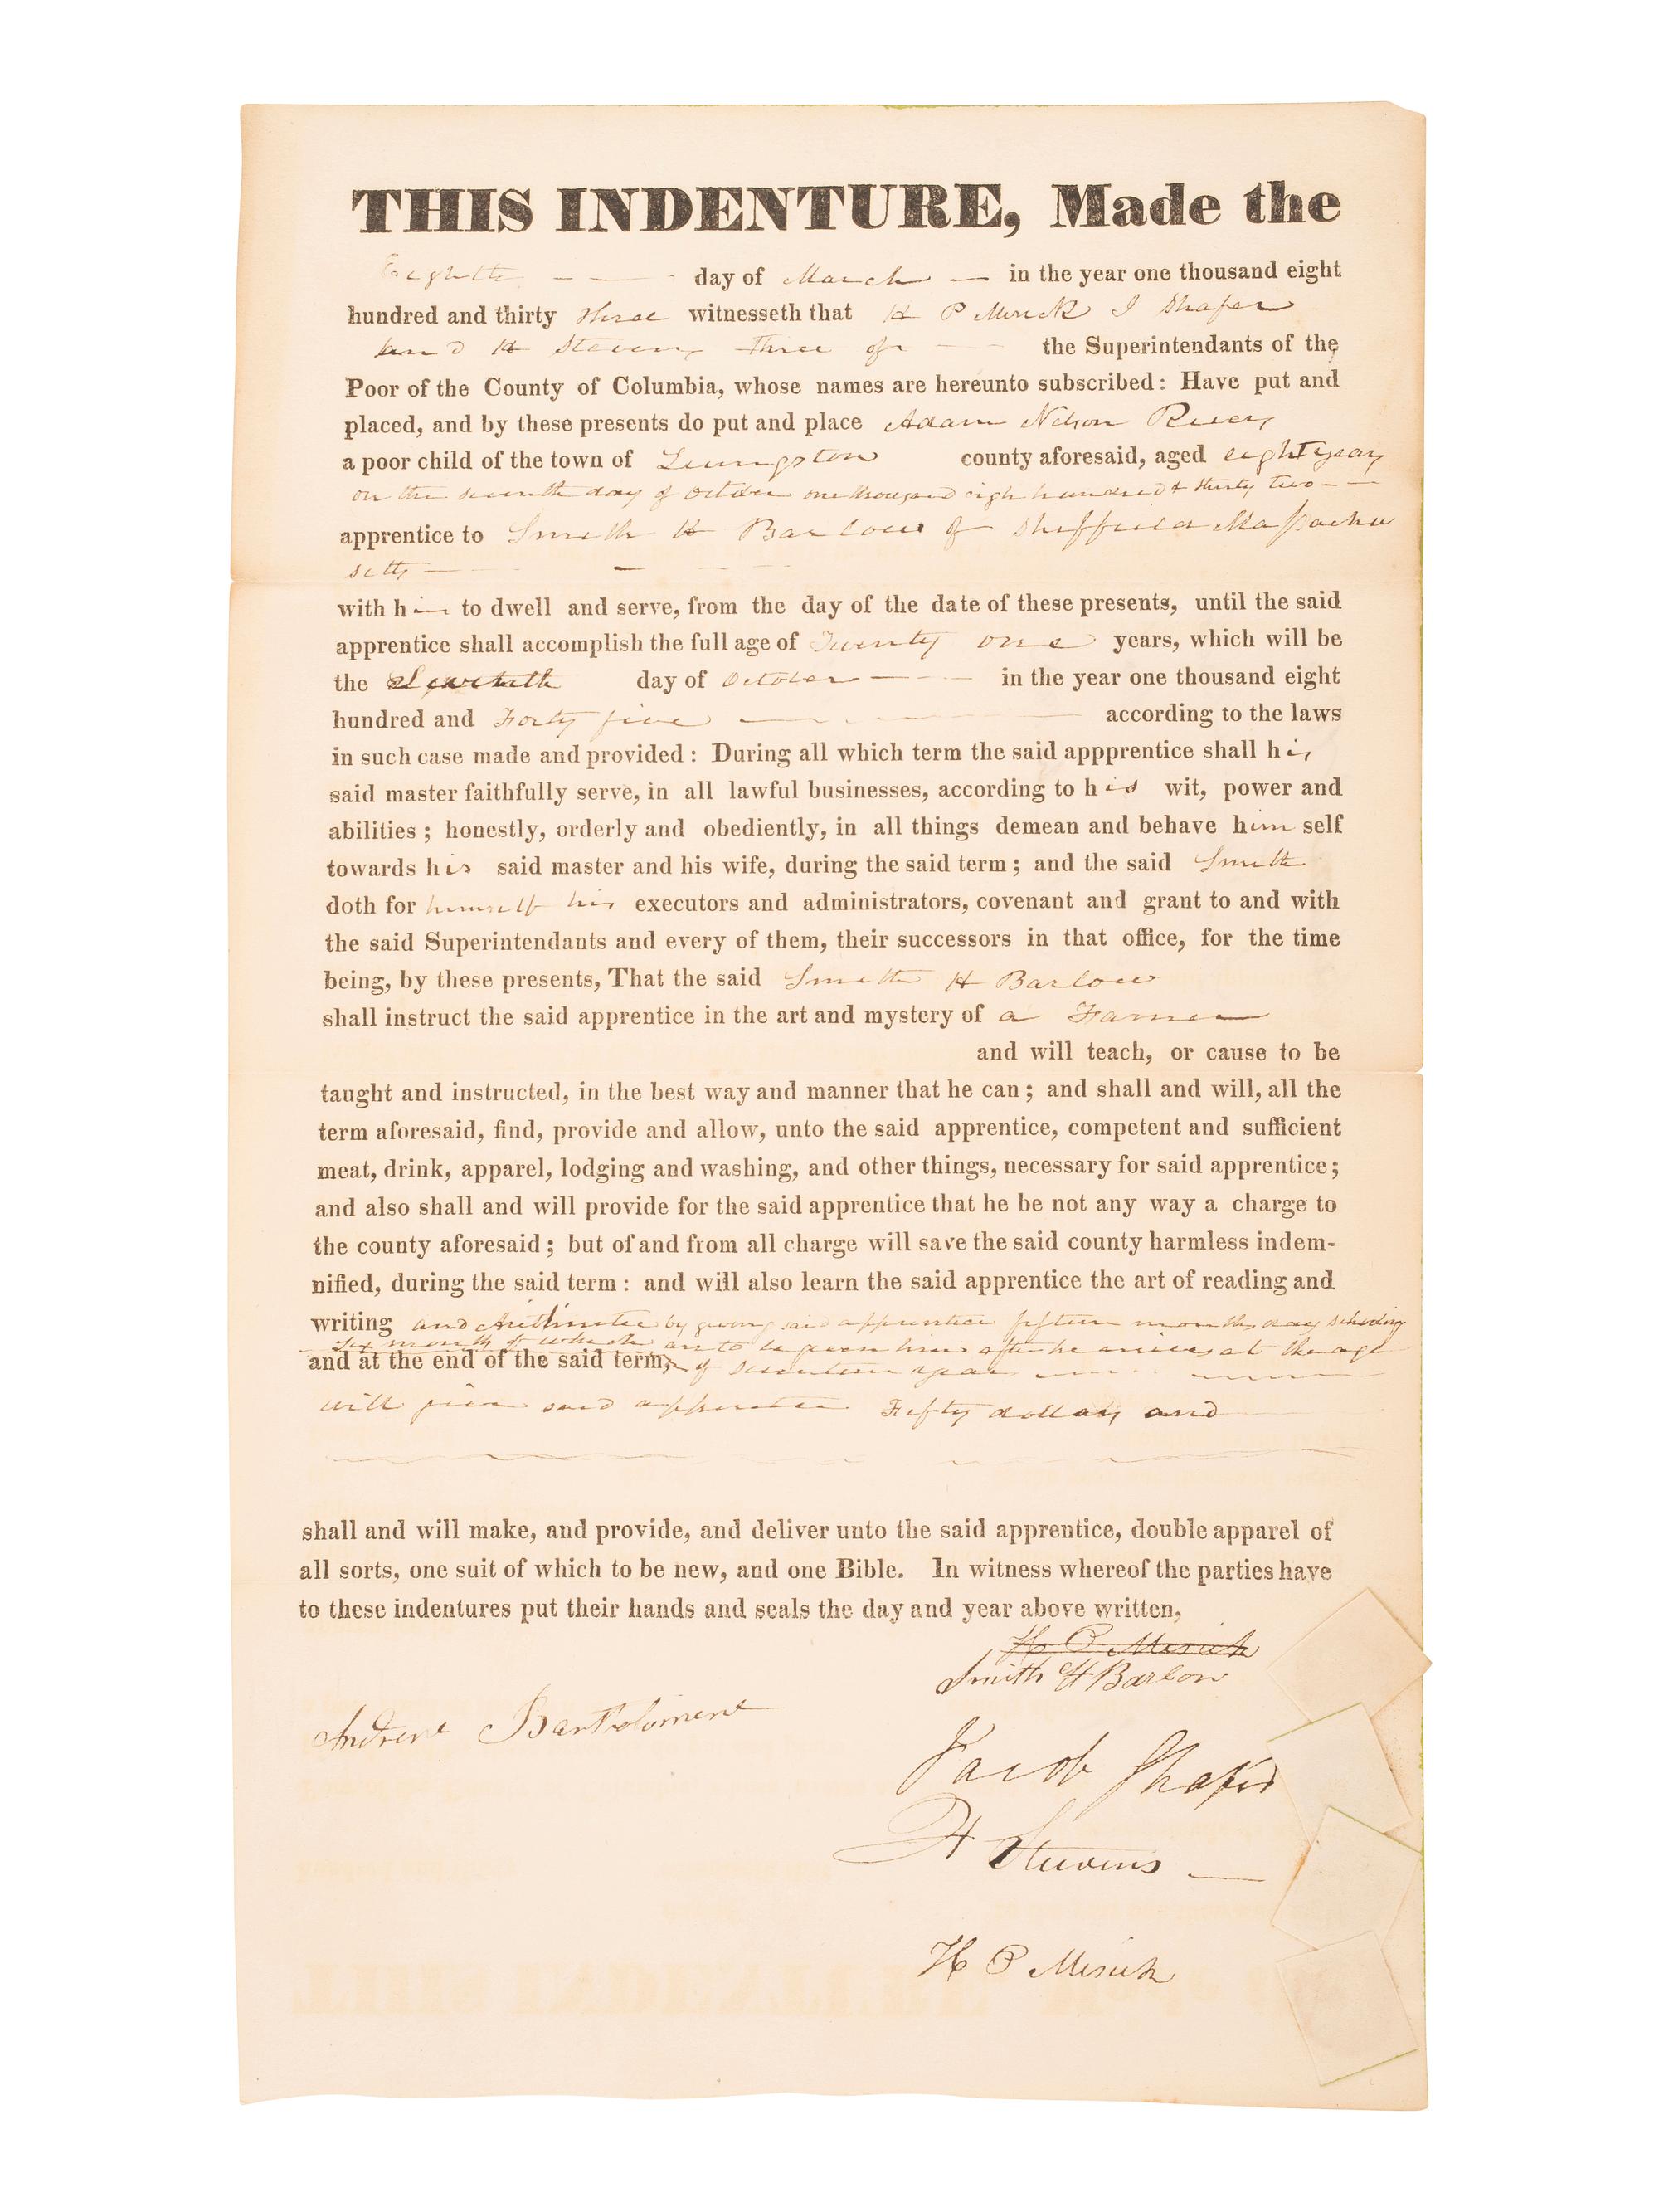 THIS INDENTURE, Made the
Eighth day of March in the year one thousand eight
hundred and thirty three witnesseth that H P Mesick J Shafer
and H Stevens three of the Superintendants of the
Poor of the County of Columbia, whose names are hereunto subscribed: Have put and
placed, and by these presents do put and place Adam Nelson
a poor child of the town of Livingston county aforesaid, aged eight years
on the seventh day of October one thousand eigh hundred & thirty two
apprentice to Smith H Barlow of Sheffield Massachu
setts
with him to dwell and serve, from the day of the date of these presents, until the said
apprentice shall accomplish the full age of Twenty one years, which will be
the Seventh day of October in the year one thousand eight
hundred and Forty five according to the laws
in such case made and provided: During all which term the said appprentice shall his
said master faithfully serve, in all lawful businesses, according to his wit, power and
abilities; honestly, orderly and obediently, in all things demean and behave him self
towards his said master and his wife, during the said term; and the said Smith
doth for himself his executors and administrators, covenant and grant to and with
the said Superintendants and every of them, their successors in that office, for the time
being, by these presents, That the said Smith H Barlow
shall instruct the said apprentice in the art and mystery of a Farmer
and will teach, or cause to be
taught and instructed, in the best way and manner that he can; and shall and will, all the
term aforesaid, find, provide and allow, unto the said apprentice, competent and sufficient
meat, drink, apparel, lodging and washing, and other things, necessary for said apprentice;
and also shall and will provide for the said apprentice that he be not any way a charge to
the county aforesaid; but of and from all charge will save the said county harmless indem-
nified, during the said term: and will also learn the said apprentice the art of reading and
writing and Arithmetic by giving said apprentice fifteen months day schooling
Six months of which are to be given him after he arrives at the age
and at the end of the said term, of seventeen years
will give said apprentice Fifty dollars and
shall and will make, and provide, and deliver unto the said apprentice, double apparel of
all sorts, one suit of which to be new, and one Bible. In witness whereof the parties have
to these indentures put their hands and seals the day and year above written,
H P Mesick
Smith H Barlow
Andrew Bartholomew
Jacob Shafer
H Stevens
H P Mesick